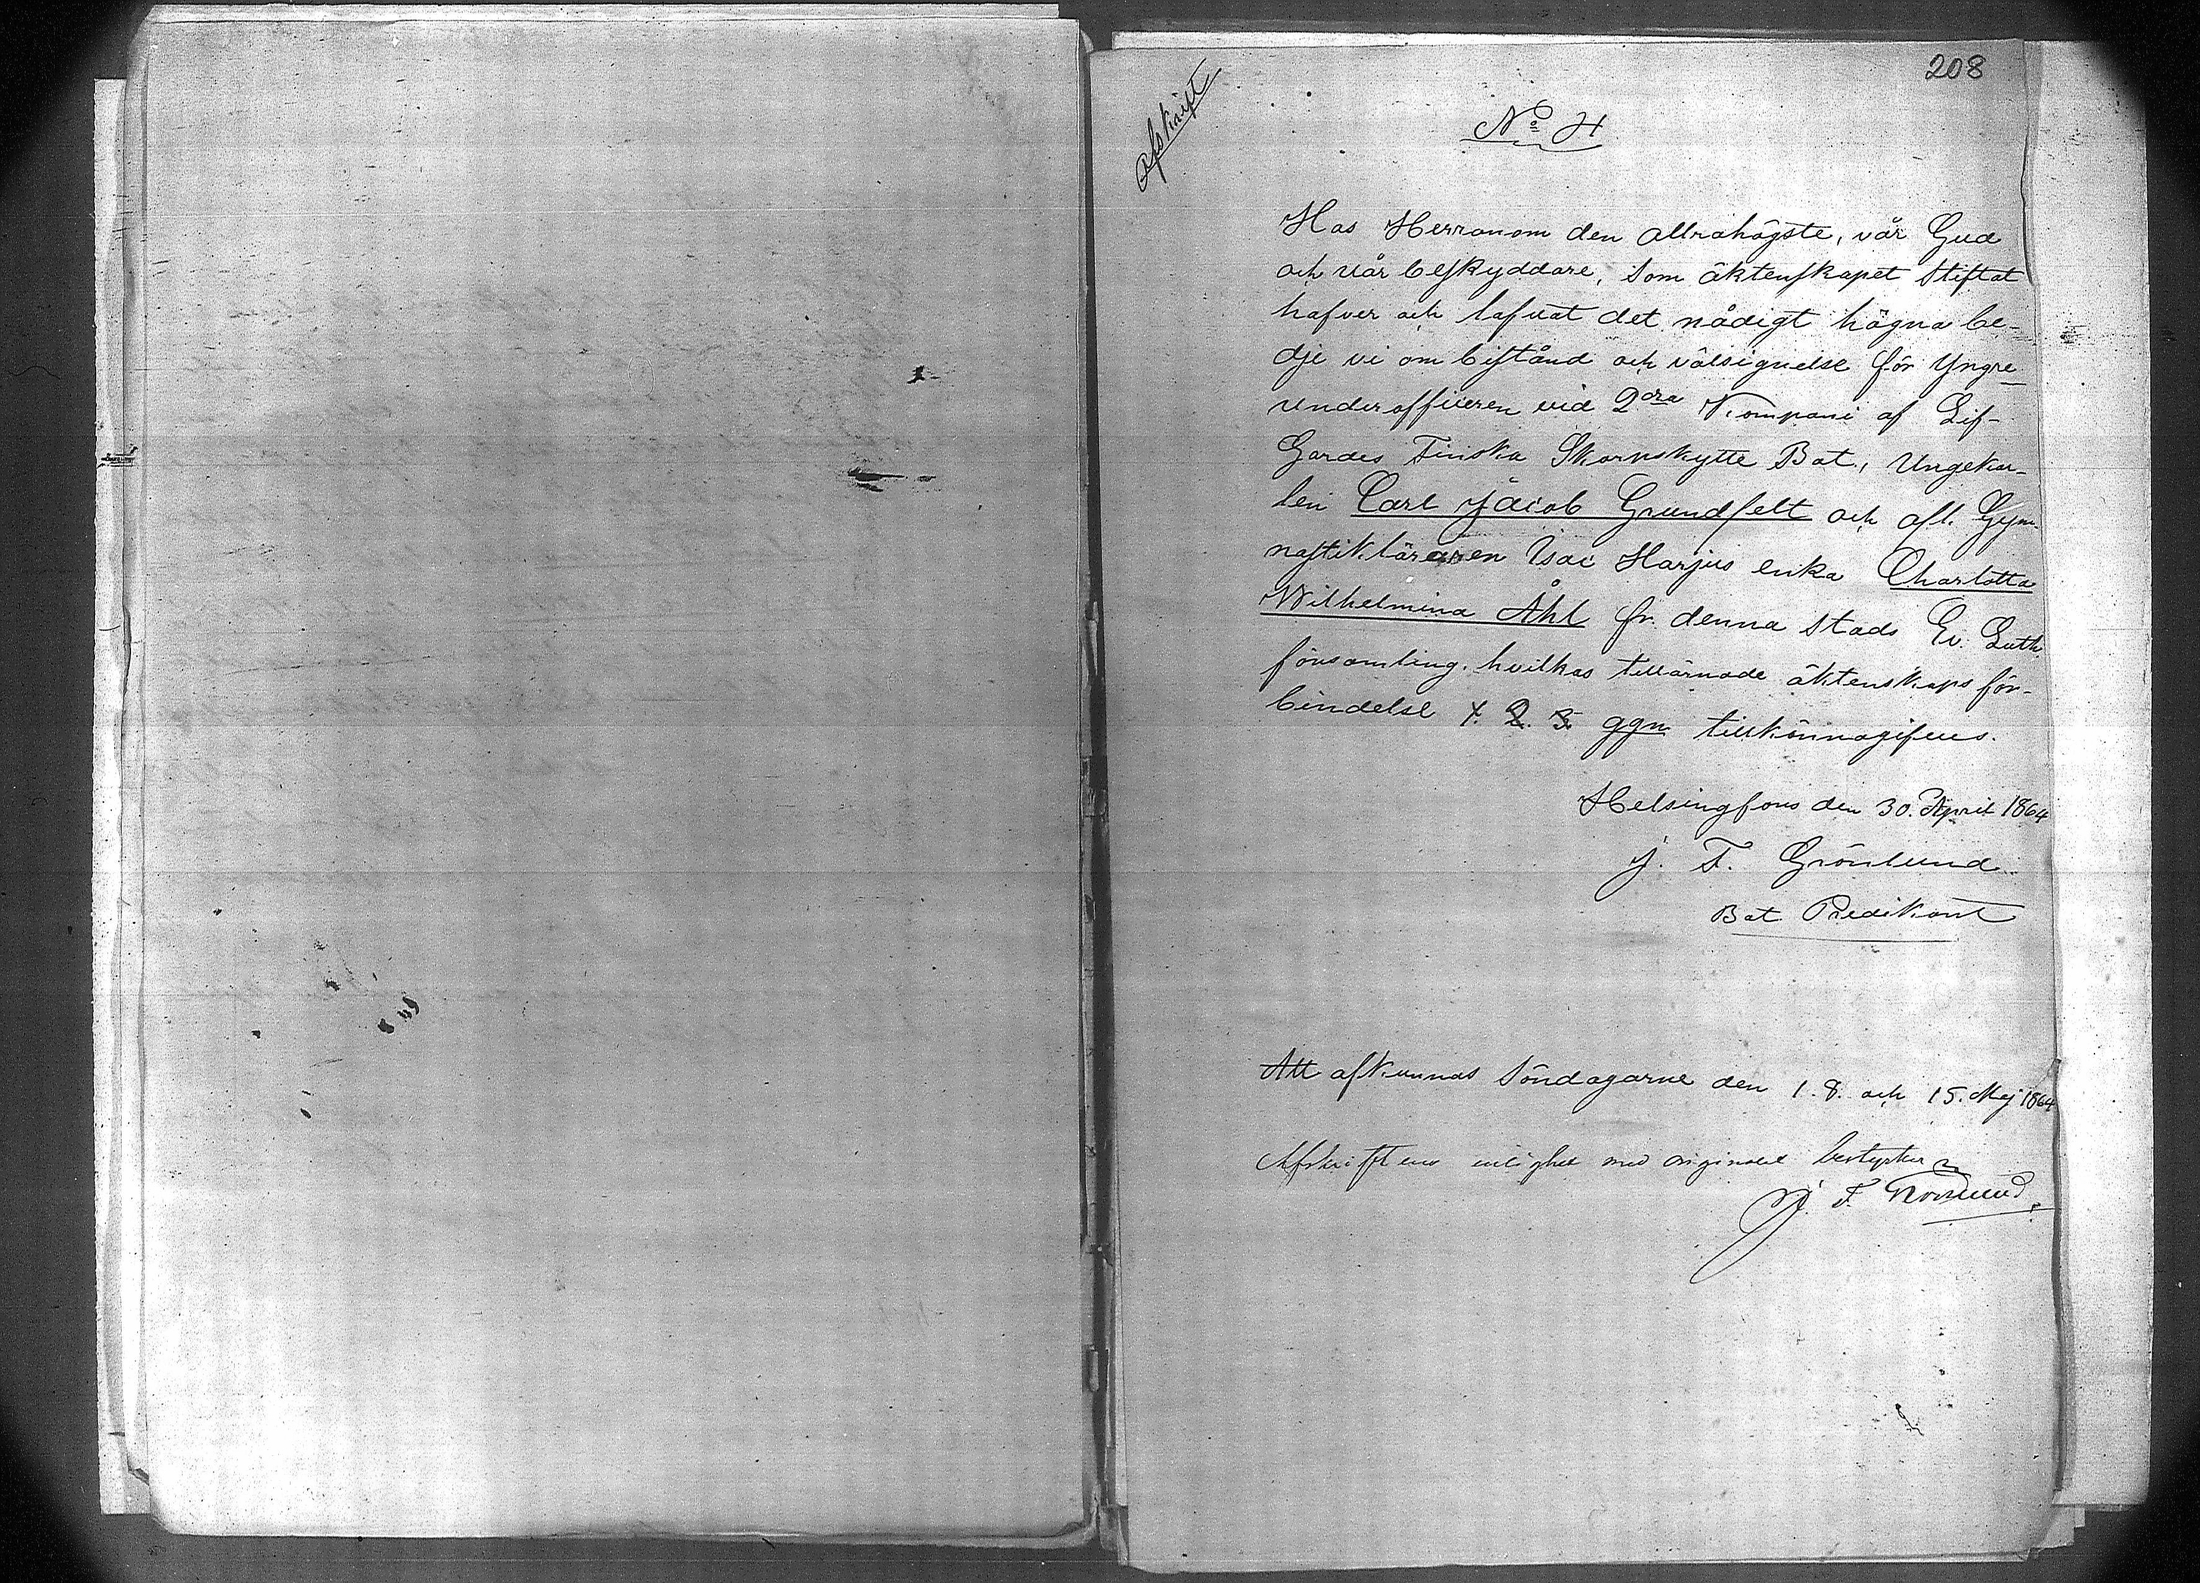 208
Afskrift
No 4
Hos Herranom den allrahögste, vår Gud
och vår beskyddare, som äktenskapet stiftat
hafver och lofvat det nådigt hägna be-
dje vi om bistånd och välsignelse för Yngre
underofficeren vid 2dra Kompani af Lif-
Gardes Finska Skarpskytte Bat., Ungekar-
len Carl Jacob Grundfelt och afl. Gym-
nastikläraren Isac Harjus enka Charlotta
Wilhelmina Åhl fr. denna stads Ev. Luth.
församling, hvilkas tillärnade äktenskaps för-
bindelse 1. 2. 3. ggn tillkännagifves.
Helsingfors den 30. April 1864
J. F. Grönlund
Bat Predikant
Att afkunnas Söndagarne den 1. 8. och 15. Maj 1864
Afskriftens enlighet med originalet bestyrker
J. F. Grönlund